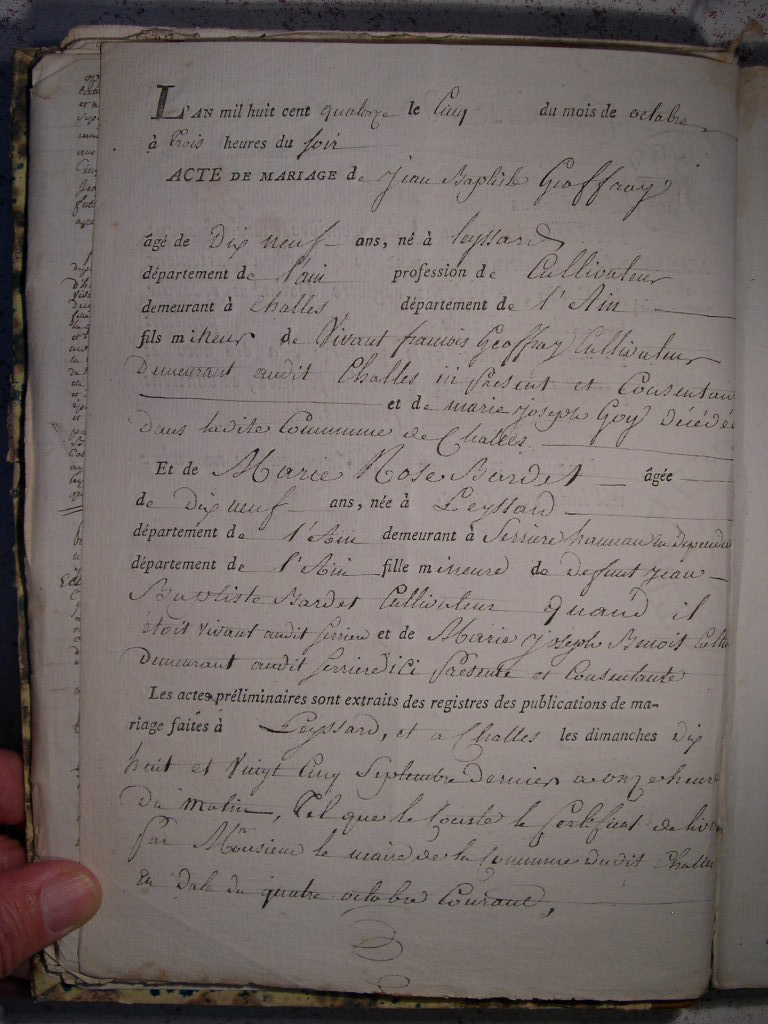 L'AN mil huit cent quatorze le Cinq du mois de octobre
à trois heures du soir
ACTE DE MARIAGE de Jean Baptiste Geoffray
âgé de Dix neuf ans, né à leyssard
département de l'ain profession de Cultivateur
demeurant à Challes département de l'Ain
fils mineur de Vivant francois Geoffray Cultivateur
Demeurant audit Challes ici present et Consentant
et de marie joseph Goy Décédée
Dans ladite Commune de Challes
Et de Marie Rose Bardet âgée
de Dix neuf ans, née à Leyssard
département de l'Ain demeurant à Serriere hameau en
département de l'Ain fille mineure de defunt jean
Baptiste Bardet Cultivateur quand il
étoit vivant audit serriere et de Marie joseph Benoit
Demeurant audit serriere ici presente et Consentante
Les actes préliminaires sont extraits des registres des publications de ma-
riage faites à Leyssard, et a Challes les dimanches dix
huit et Vingt Cinq Septembre Dernier a onze heure
Du matin, Tel que le Conste le Certificat
par Monsieur le maire de la Commune dudit Challes
En Date du quatre octobre Courant,